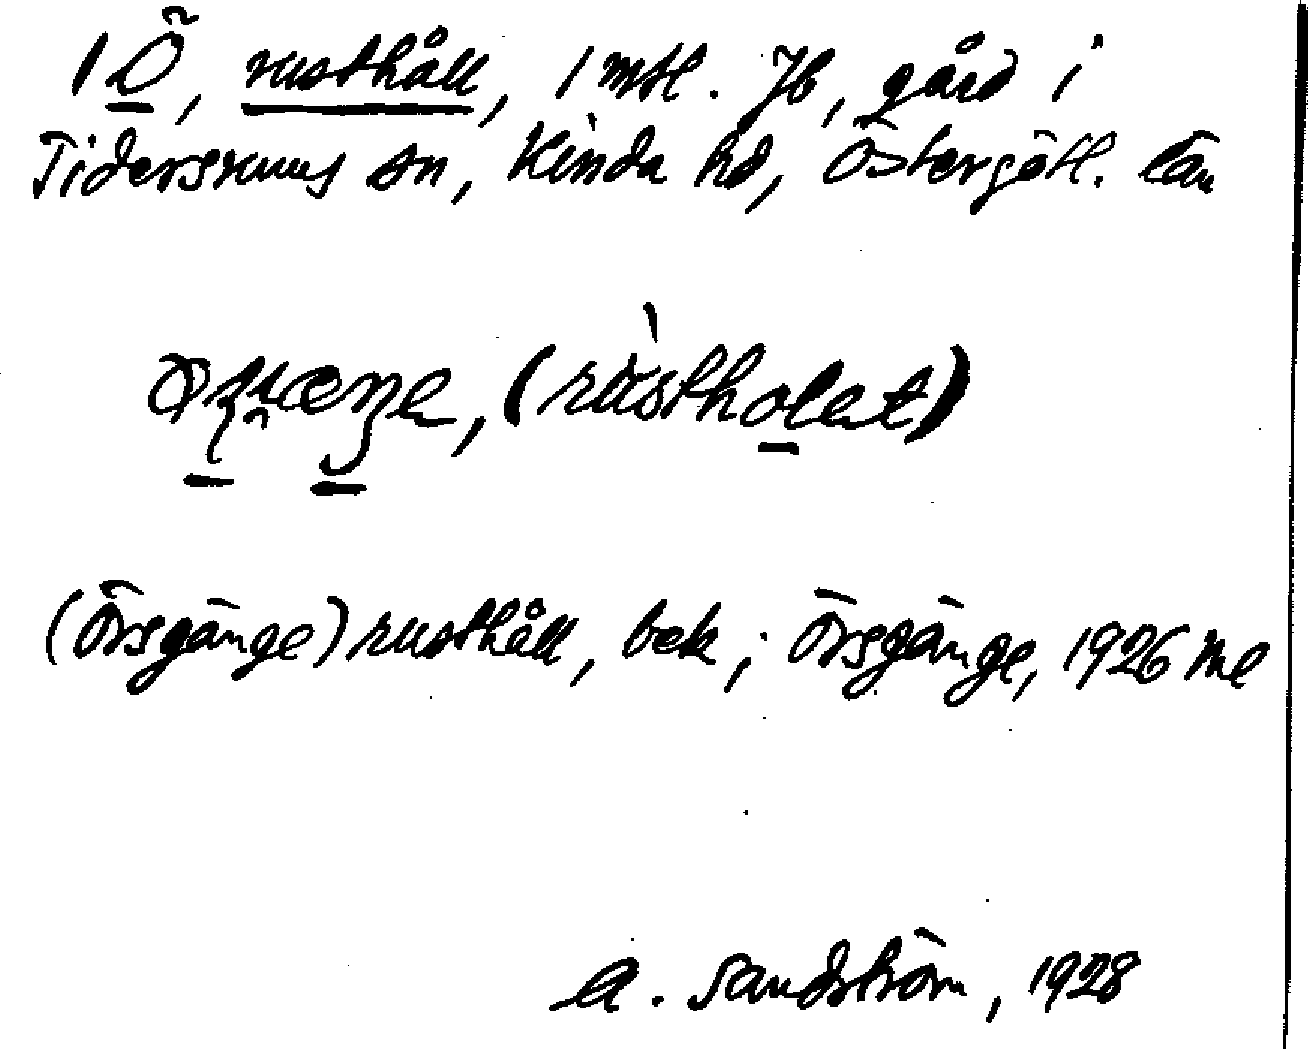 1 Ö, rusthåll, 1 mtl. Jb, gård i
Tidersrums sn, Kinda hd, Östergötl. län
(rùstholet)
(Örsgänge) rusthåll, bek; Örsgänge, 1926 ml
A. Sandström, 1928